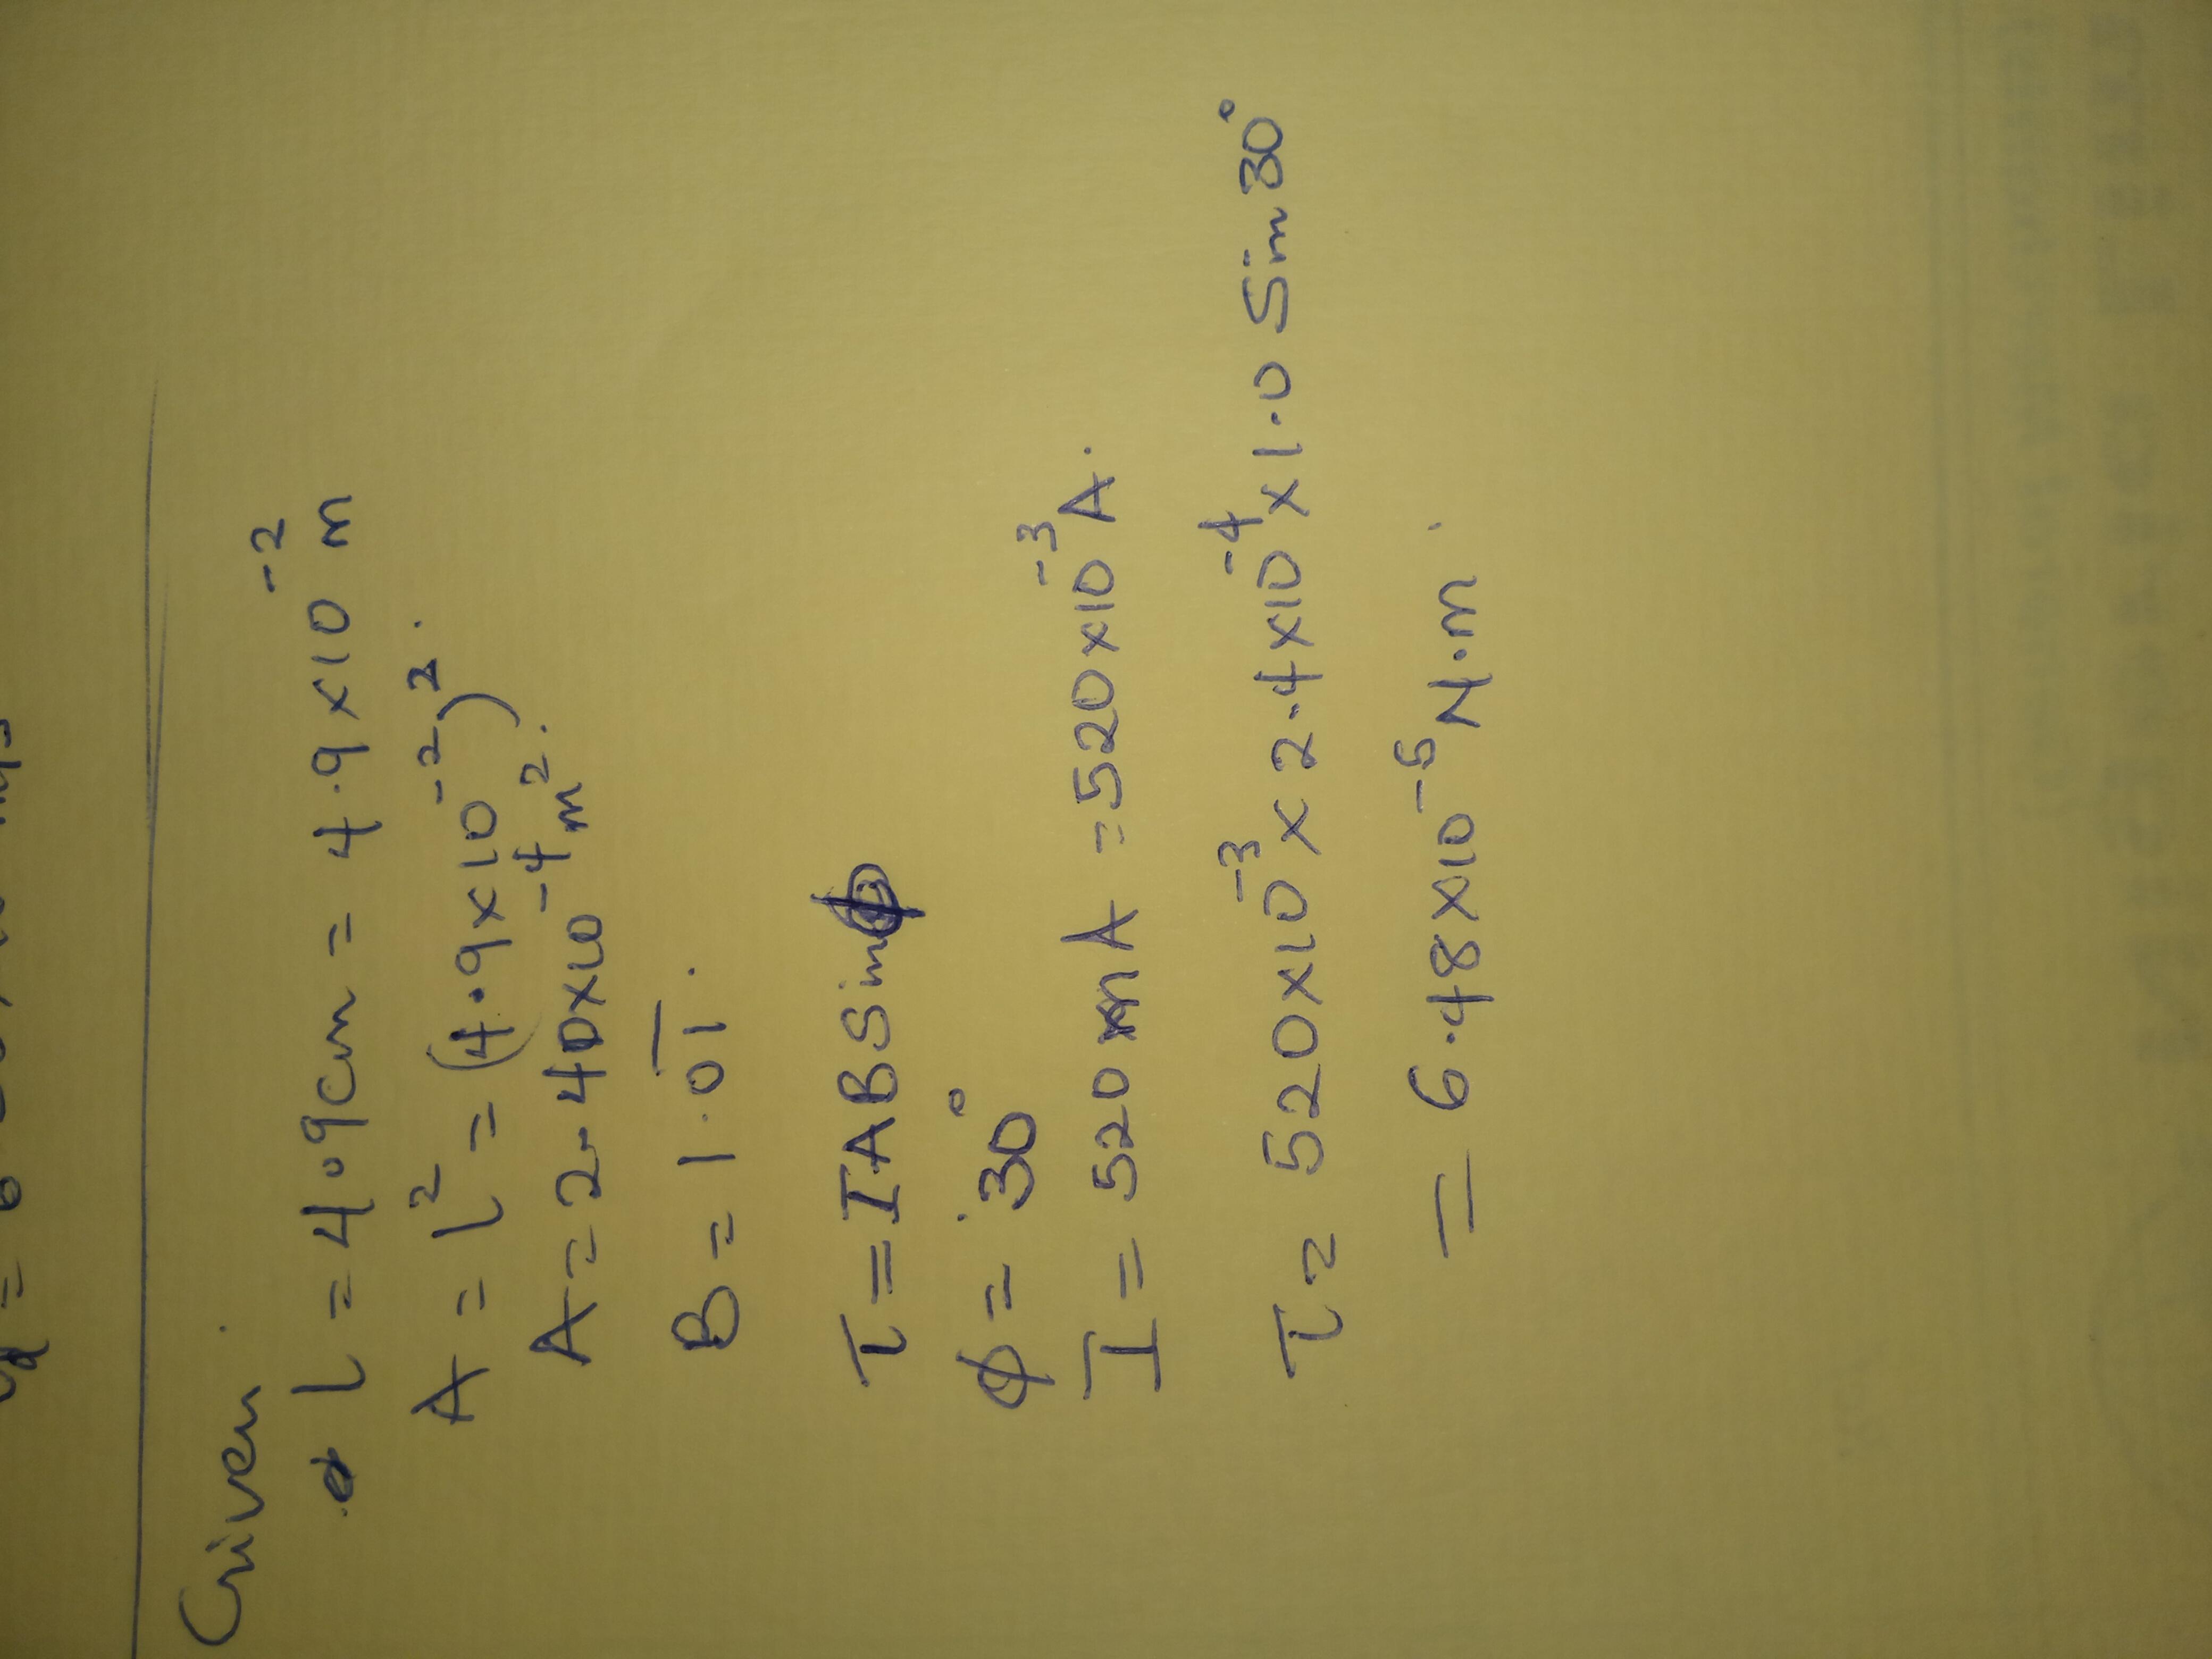 Given
l = 4.9cm = 4.9 x 10⁻² m
A = l² = (4.9 x 10⁻²)².
A = 2.40x10⁻⁴ m².
B = 1.0T.
τ = IAB Sin ϕ
ϕ = 30°
I = 520 mA = 520 x 10⁻³ A.
τ = 520x10⁻³ x 2.4x10⁻⁴ x 1.0 Sin 30°
= 6.48 x 10⁻⁵ N.m.